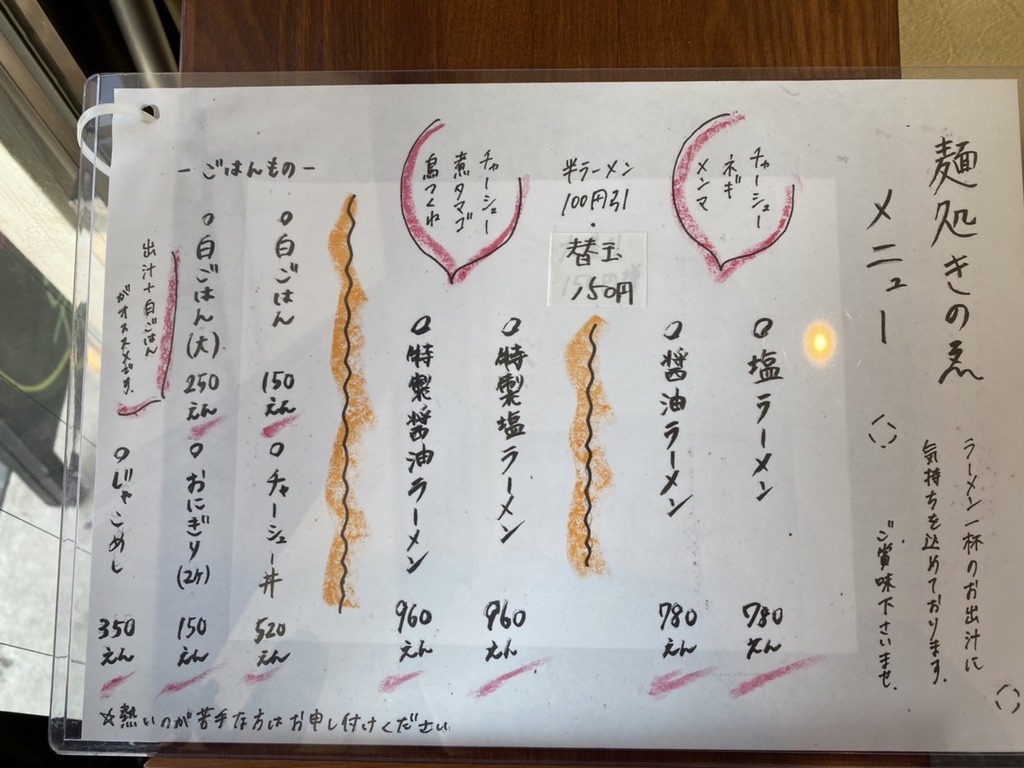 麺処きのゑ
メニュー
ラーメン一杯のお出汁に
気持ちを込めております。
ご賞味下さいませ。
チャーシュー
ネギ
メンマ
○塩ラーメン
780
えん
○醤油ラーメン
780
えん
半ラーメン
100円引
・
替玉
150円
チャーシュー
煮タマゴ
鳥つくね
○特製塩ラーメン
960
えん
○特製醤油ラーメン
960
えん
-ごはんもの-
○白ごはん
150
えん
○白ごはん(大)
250
えん
出汁+白ごはん
がオススメです。
○チャーシュー丼
520
えん
○おにぎり(2ケ)
150
えん
○じゃこめし
350
えん
☆熱いのが苦手な方はお申し付けください